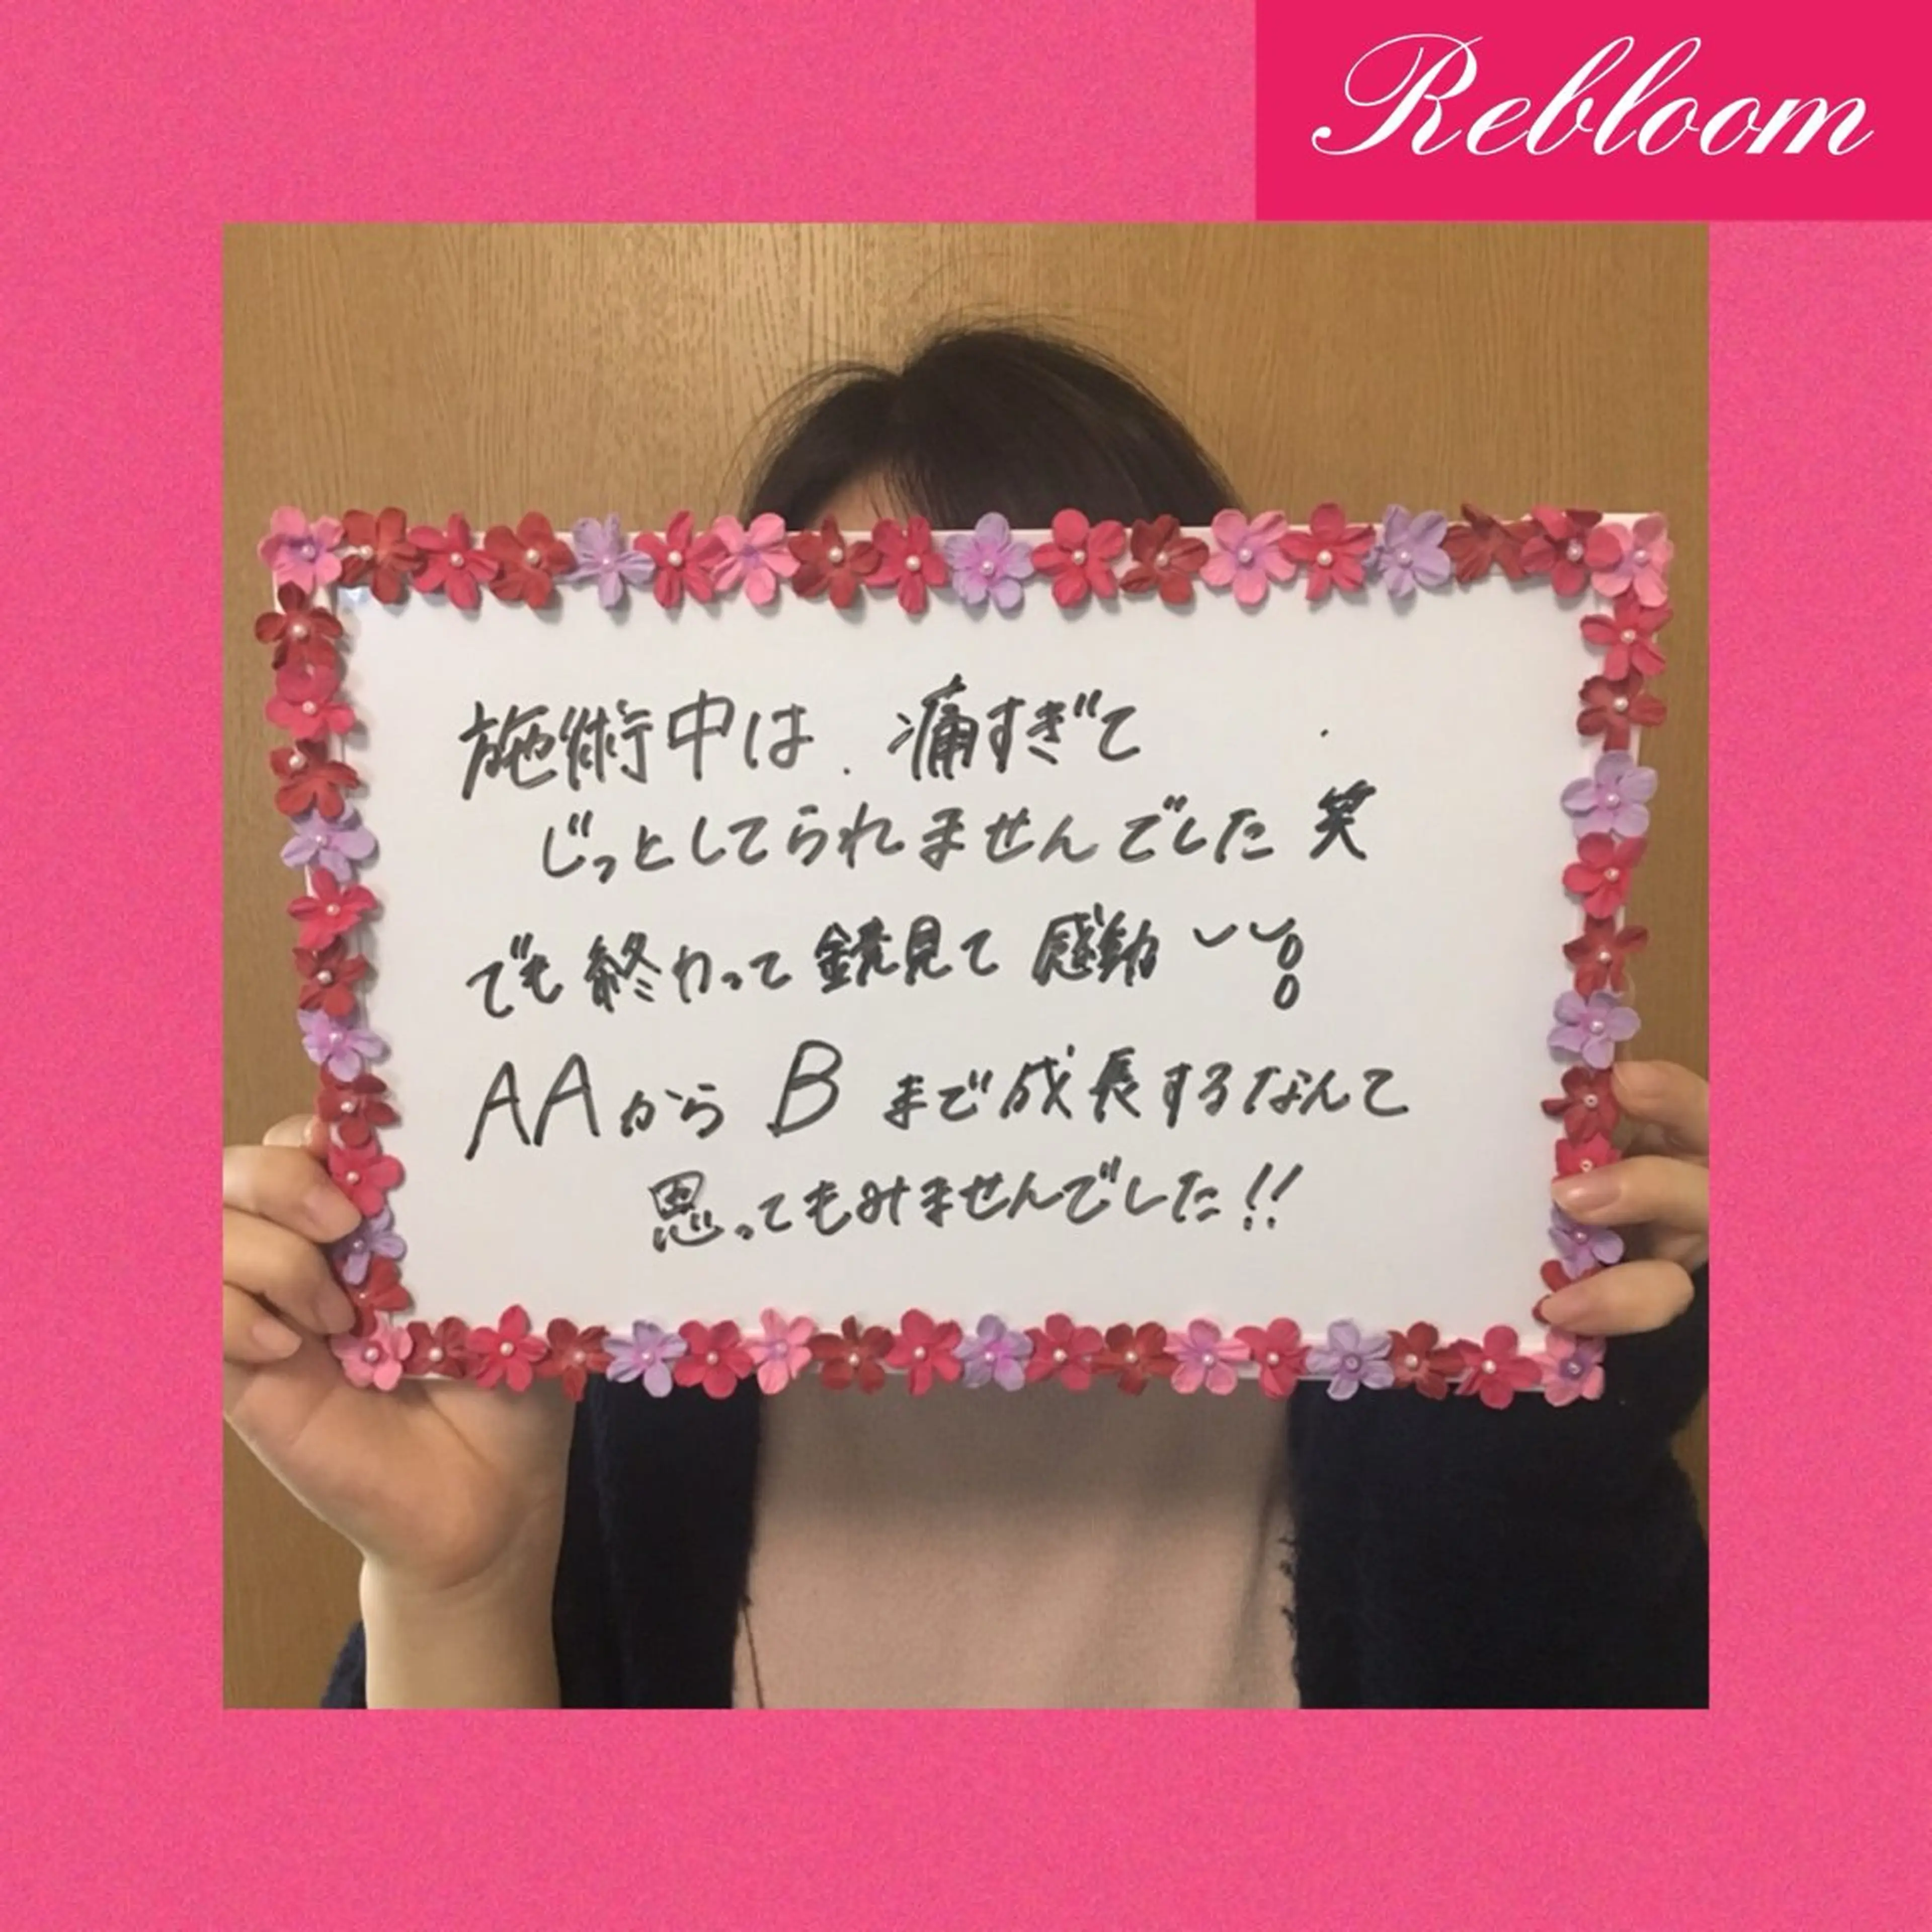 Rebloom
施術中は、痛すぎて
じっとしてられませんでした 笑
でも終わって鏡見て感動
AAからBまで成長するなんて
思ってもみませんでした!!